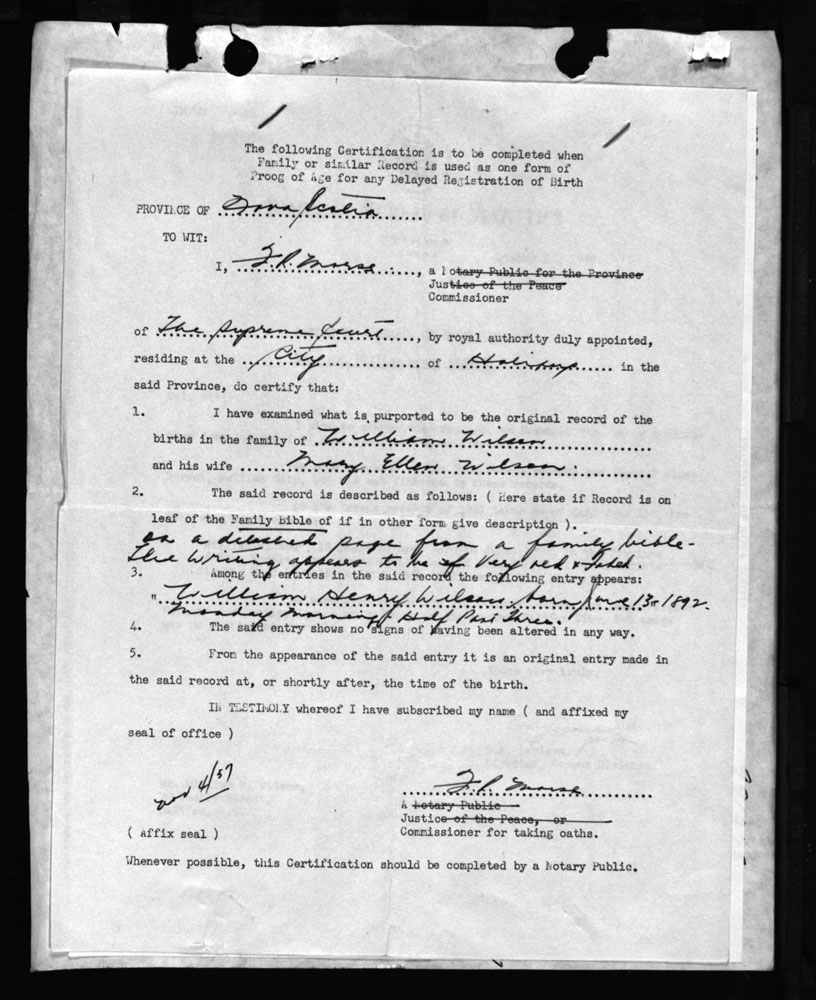 The following Certification is to be completed when
Family or similar Record is used as one form of
Proog of Age for any Delayed Registration of Birth
PROVINCE OF Nova Scotia
TO WIT:
I, F. P. Morse, a Notary Public for the Province
Justice of the Peace
Commissioner
of The Supreme Court, by royal authority duly appointed,
residing at the City of Halifax in the
said Province, do certify that:
1. I have examined what is purported to be the original record of the
births in the family of William Wilson
and his wife Mary Ellen Wilson.
2. The said record is described as follows: ( Here state if Record is on
leaf of the Family Bible of if in other form give description ).
on a detached page from a family bible -
The writing appears to be of very old & faded.
3. Among the entries in the said record the following entry appears:
" William Henry Wilson born June 13th 1892.
Monday morning Half Past Three.
4. The said entry shows no signs of having been altered in any way.
5. From the appearance of the said entry it is an original entry made in
the said record at, or shortly after, the time of the birth.
IN TESTIMONY whereof I have subscribed my name ( and affixed my
seal of office )
Nov 4/57
F. P. Morse
A Notary Public
Justice of the Peace, or
( Affix seal ) Commissioner for taking oaths.
Whenever possible, this Certification should be completed by a Notary Public.